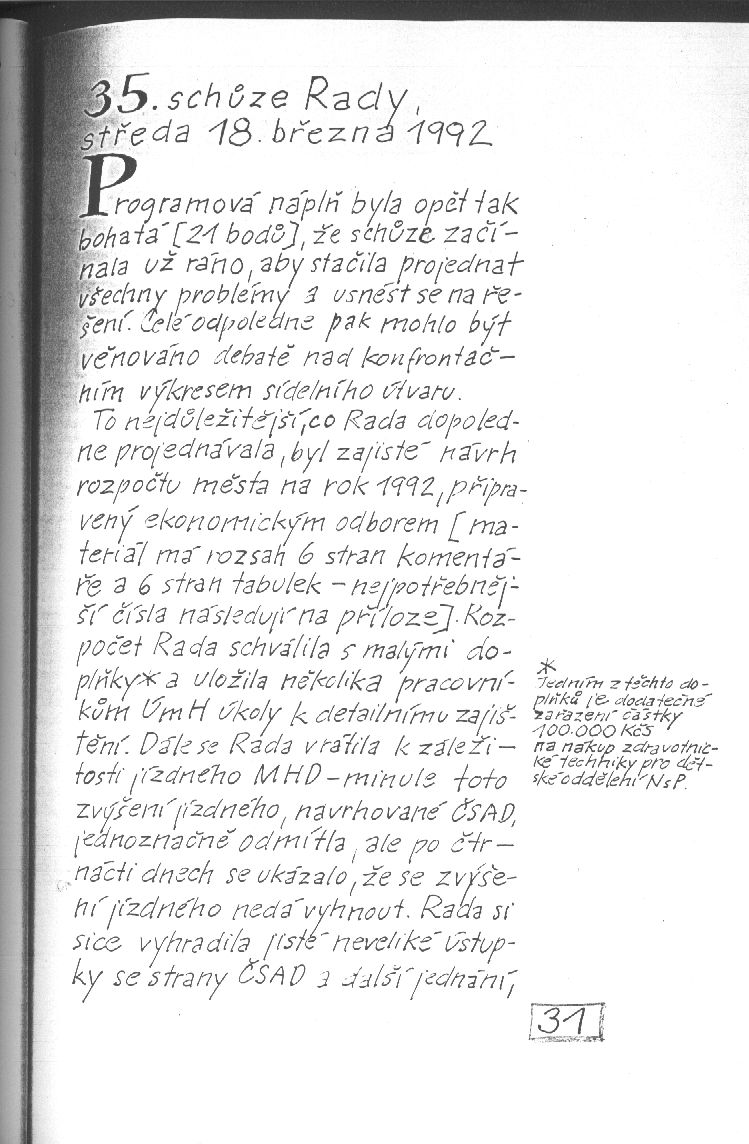 35. schůze Rady,
středa 18. března 1992
Programová náplň byla opět tak
bohatá [21 bodů], že schůze začí-
nala už ráno, aby stačila projednat
všechny problémy a usnést se na ře-
šení. Celé odpoledne pak mohlo být
věnováno debatě nad konfrontač-
ním výkresem sídelního útvaru.
To nejdůležitější, co Rada dopoled-
ne projednávala, byl zajisté návrh
rozpočtu města na rok 1992, připra-
vený ekonomickým odborem [ma-
teriál má rozsah 6 stran komentá-
ře a 6 stran tabulek - nejpotřebněj-
ší čísla následují na příloze]. Roz-
počet Rada schválila s malými do-
plňky* a uložila několika pracovní-
kům ÚmH úkoly k detailnímu zajiš-
tění. Dále se Rada vrátila k záleži-
tosti jízdného MHD - minule toto
zvýšení jízdného, navrhované ČSAD,
jednoznačně odmítla, ale po čtr-
nácti dnech se ukázalo, že se zvýše-
ní jízdného nedá vyhnout. Rada si
sice vyhradila jisté neveliké ústup-
ky se strany ČSAD a další jednání,
*
Jedním z těchto do-
plňků je dodatečné
zařazení částky
100.000 Kčs
na nákup zdravotnic-
ké techniky pro dět-
ské oddělení NsP.
31